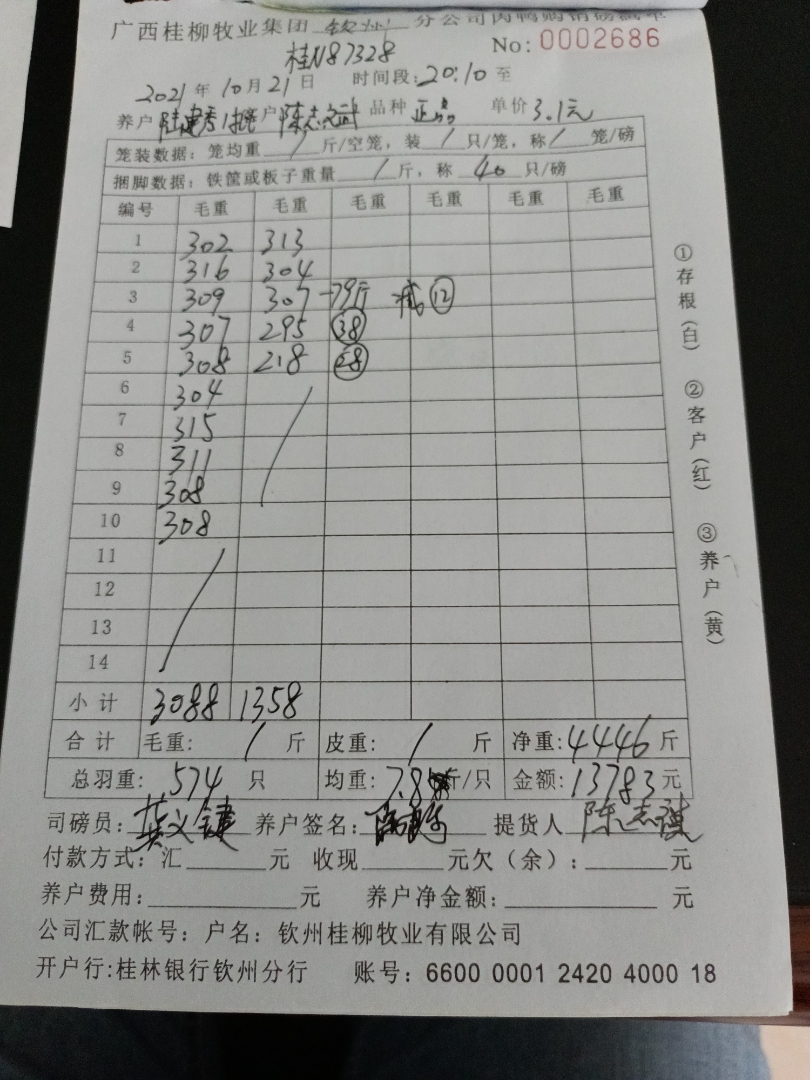 广西桂柳牧业集团 钦州 分公司肉鸭购销磅码单
桂N87328 No: 0002686
2021年10月21日 时间段:20:10至
养户 陆建秀 客户 陈志武 品种 正品 单价 3.1元
笼装数据: 笼均重 / 斤/空笼, 装 / 只/笼, 称 / 笼/磅
捆脚数据: 铁筐或板子重量 / 斤, 称 40 只/磅
编号 毛重 毛重 毛重 毛重 毛重 毛重
1 302 313
2 316 304
3 309 307 -79斤 减⑫
4 307 295 38
5 308 218 28
6 304
7 315
8 311
9 308
10 308
11
12
13
14
小计 3088 1358
合计 毛重: / 斤 皮重: / 斤 净重:4446斤
总羽重: 574 只 均重:7.8斤/只 金额:13783元
司磅员: 养户签名: 提货人 陈志
付款方式: 汇 元 收现 元欠(余): 元
养户费用: 元 养户净金额: 元
公司汇款帐号: 户名: 钦州桂柳牧业有限公司
开户行:桂林银行钦州分行 账号: 6600 0001 2420 4000 18
①存根(白) ②客户(红) ③养户(黄)